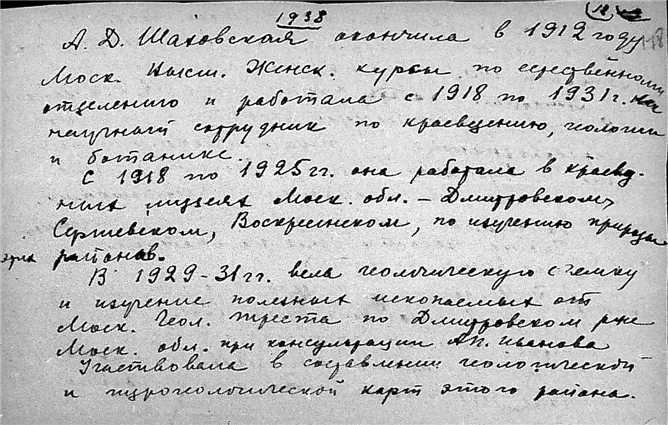 1938
А. Д. Шаховская окончила в 1912 году
Моск. Высш. Женск. курсы по естественному
отделению и работала с 1918 по 1931 г. как
научный сотрудник по краеведению, геологии
и ботанике.
С 1918 по 1925 гг. она работала в краевед-
ных музеях Моск. обл. – Дмитровском,
Сергиевском, Воскресенском, по изучению природы
этих районов.
В 1929-31 гг. вела геологическую съемку
и изучение полезных ископаемых от
Моск. Геол. Треста по Дмитровском р-не
Моск. обл. при консультации А.П. Иванова
Участвовала в составлении геологической
и гидрогеологической карт этого района.